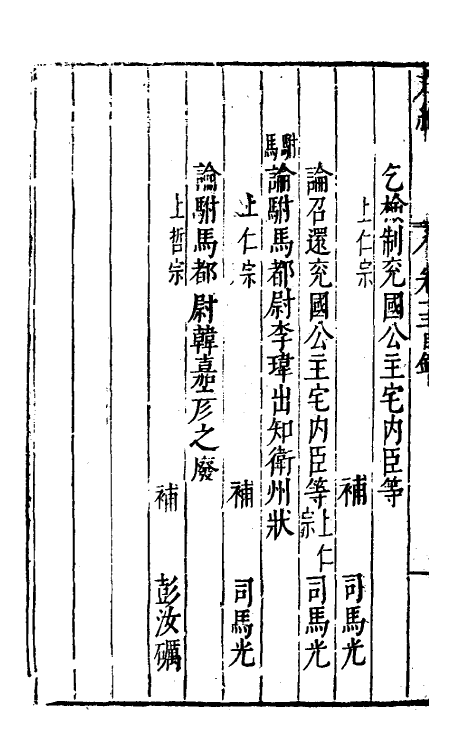 乞檢制兗國公主宅内臣等
上仁宗　補　司馬光
論召還兗國公主宅内臣等上仁宗　司馬光
駙馬
論駙馬都尉李瑋出知衛州狀
上仁宗　補　司馬光
論駙馬都尉韓嘉彦之廢
上哲宗　補　彭汝礪